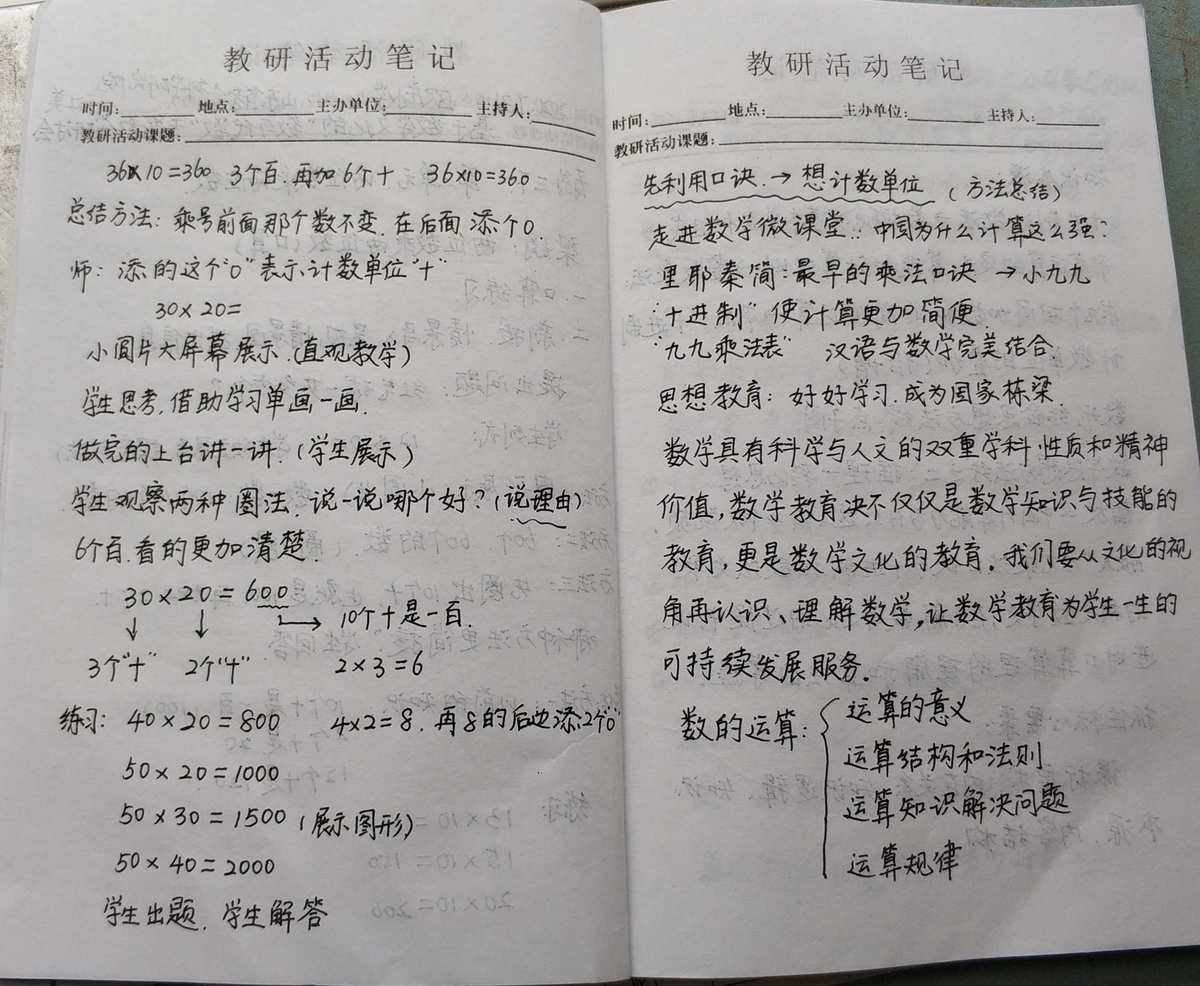 教研活动笔记
时间: 地点: 主办单位: 主持人:
教研活动课题:
36×10=360 3个百.再加6个十 36×10=360
总结方法: 乘号前面那个数不变.在后面添个0
师: 添的这个"0"表示计数单位"十"
30×20=
小圆片大屏幕展示.(直观教学)
学生思考.借助学习单画一画.
做完的上台讲一讲.(学生展示)
学生观察两种圈法.说一说哪个好?(说理由)
6个百.看的更加清楚.
30×20=600
→ 10个十是一百.
↓ ↓
3个"十" 2个"十" 2×3=6
练习: 40×20=800 4×2=8.再8的后边添2个"0"
50×20=1000
50×30=1500 (展示图形)
50×40=2000
学生出题.学生解答
教研活动笔记
时间: 地点: 主办单位: 主持人:
教研活动课题:
先利用口诀.→想计数单位 (方法总结)
走进数学微课堂:: 中国为什么计算这么强?
里耶秦简:最早的乘法口诀 →小九九
"十进制" 使计算更加简便.
"九九乘法表" 汉语与数学完美结合.
思想教育: 好好学习.成为国家栋梁.
数学具有科学与人文的双重学科性质和精神
价值,数学教育决不仅仅是数学知识与技能的
教育,更是数学文化的教育。我们要从文化的视
角再认识、理解数学,让数学教育为学生一生的
可持续发展服务。
数的运算:
运算的意义
运算结构和法则
运算知识解决问题
运算规律